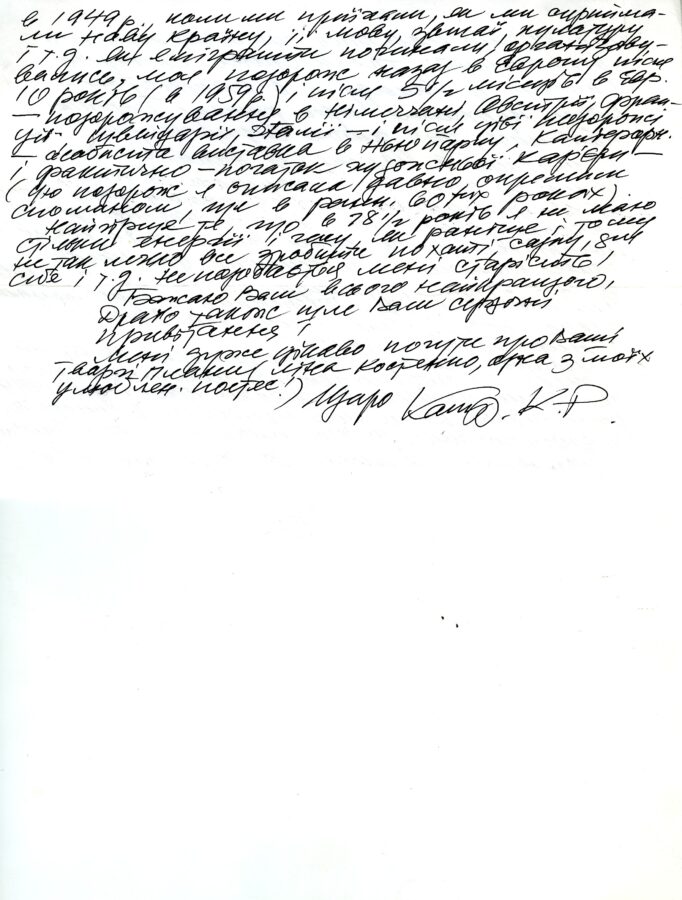 в 1949 р., коли ми приїхали, як ми сприйма-
ли нову країну, її мову, звичаї, культуру
і т.д. як емігранти починали організову-
вались, моя подорож назад в Европу після
10 років (в 1959 р.) і після 5 1/2 місяців в Евр.
– подорожування в Німеччині, Австрії, Фран-
ції, Швейцарії, Італії – і після цієї подорожі
– особиста виставка в Ню Йорку,
і фактично – початок художньої кар'єри –
(цю подорож я описала давно, окремим
споминам, ще в ранніх 60тих роках).
Найгірше те, що в 78 1/2 років я не маю
стільки енергії і часу як раніше і тому
не так легко все зробити по хаті, саду, для
себе і т.д. Не подобається мені старість!
Бажаю Вам всього найкращого,
також шле Вам сердечні
привітання!
Мені дуже цікаво почути про Ваші
творчі плани (Ліна Костенко, одна з моїх
улюблен. поетес!) Щиро К.Р.